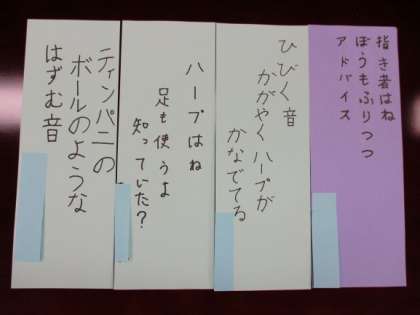 指き者はね
ぼうもふりつつ
アドバイス
ひびく音
かがやくハープが
かなでてる
ハープはね
足も使うよ
知っていた?
ティンパニの
ボールのような
はずむ音